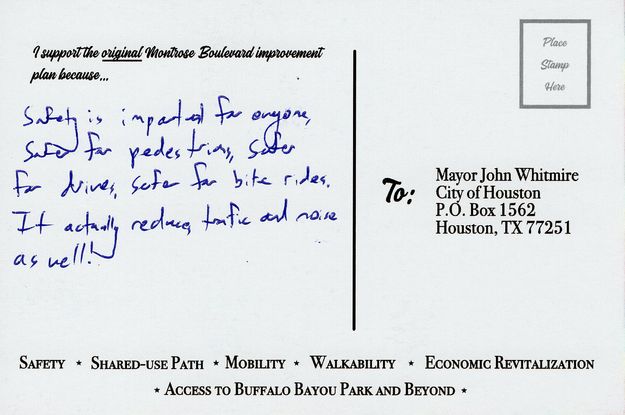 I support the original Montrose Boulevard improvement
plan because...
Safety is important for everyone,
safer for pedestrians, safer
for drives, safer for bike rides.
It actually reduces traffic and noise
as well!
Place
Stamp
Here
To:
Mayor John Whitmire
City of Houston
P.O. Box 1562
Houston, TX 77251
SAFETY ★ SHARED-USE PATH ★ MOBILITY ★ WALKABILITY ★ ECONOMIC REVITALIZATION
★ ACCESS TO BUFFALO BAYOU PARK AND BEYOND ★